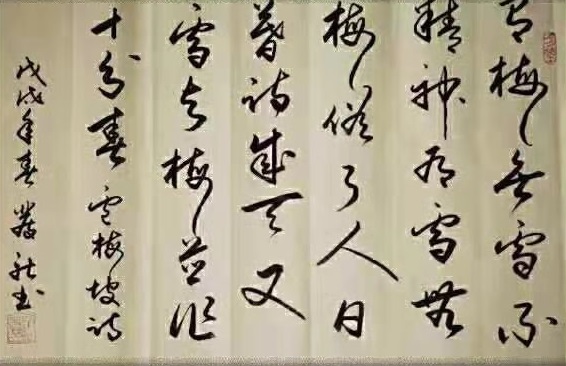 有梅无雪不
精神有雪無
梅俗了人日
暮诗成天又
雪与梅並作
十分春 盧梅坡诗
戊戌年春 书